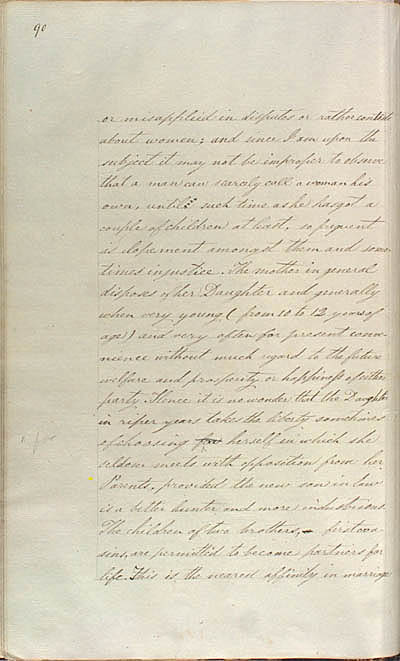 90
or misapplied in disputes or rather contests
about women; and since I am upon the
subject it may not be improper to observe
that a man can scarcely call a woman his
own, until such time as he has got a
couple of children at least, so frequent
is elopement amongst them and some-
times injustice. The mother in general
disposes of her Daughter and generally
when very young (from 10 to 12 years of
age) and very often for present conve-
nience without much regard to the future
welfare and prosperity or happiness of either
party. Hence it is no wonder that the Daughter
in riper years takes the liberty sometimes
of choosing for herself in which she
seldom meets with opposition from her
Parents, provided the new son in law
is a better hunter and more industrious.
The children of two brothers, first cou-
sins, are permitted to become partners for
life. This is the nearest affinity in marriage